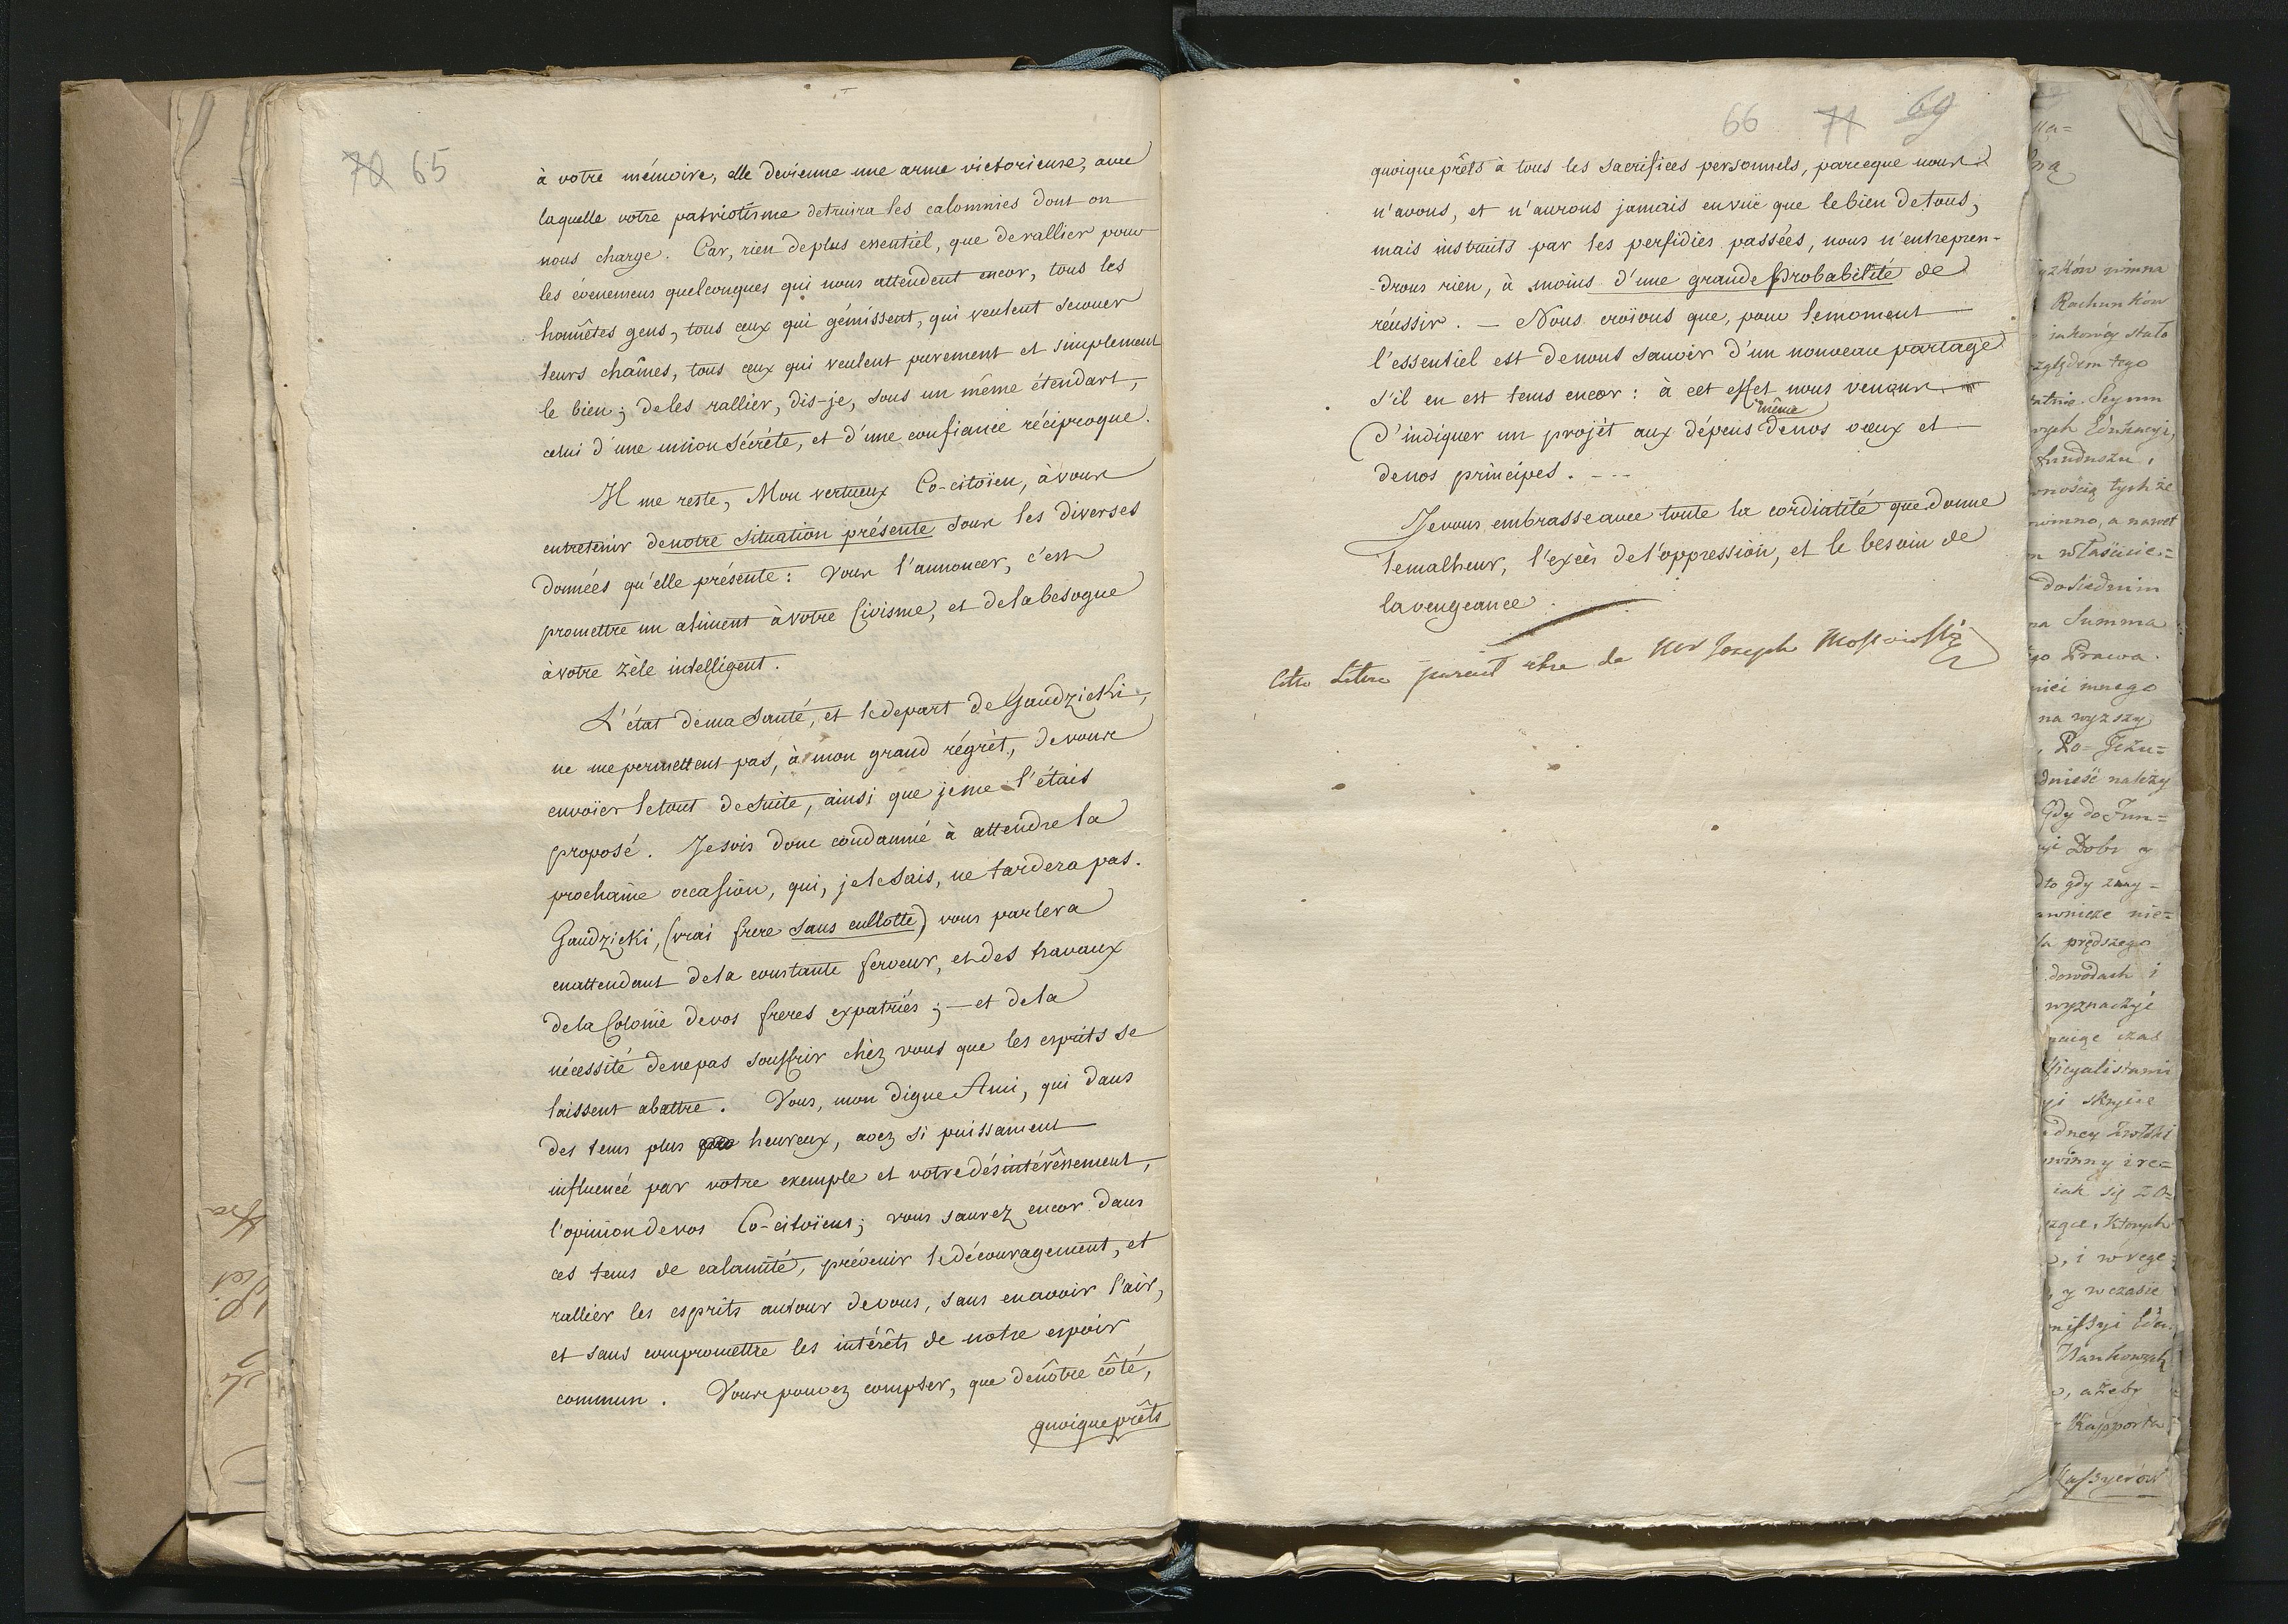 70 65
à votre mémoire, elle devienne une arme victorieuse, avec
laquelle votre patriotisme detruira les calomnies dont on
nous charge. Car, rien de plus essentiel, que de rallier pour
les évenemens quelconques qui nous attendent encor, tous les
honnêtes gens, tous ceux qui gémissent, qui veulent secouer
leurs chaînes, tous ceux qui veulent purement et simplement
le bien; de les rallier, dis-je, sous un même étendart,
celui d'une union sécréte, et d'une confiance réciproque.
Il me reste, Mon vertueux Co-citoïen, à vous
entretenir de notre situation présente sous les diverses
données qu'elle présente: Vous l'annoncer, c'est
promettre un aliment à votre Civisme, et de la besogne
à votre zèle intelligent.
L'état de ma Santé, et le depart de Gaudzicki,
ne me permettent pas, à mon grand régrèt, de vous
envoïer le tout de suite, ainsi que je me l'étais
proposé. Je suis donc condamné à attendre la
prochaine occasion, qui, je le sais, ne tardera pas.
Gaudzicki, (vrai frere sans cullotte) vous parlera
en attendant de la constante ferveur, et des travaux
de la Colonie de vos freres expatriés; — et de la
nécessité de ne pas souffrir chèz vous que les esprits se
laissent abattre. Vous, mon digne Ami, qui dans
des tems plus heureux, avez si puissament
influencé par votre exemple et votre désintérêssement,
l'opinion de vos Co-citoïens; vous saurez encor dans
ces tems de calamité, prévenir le découragement, et
rallier les esprits autour de vous, sans en avoir l'air,
et sans compromettre les intérêts de notre espoir
commun. Vous pouvez compter, que de nôtre côté,
quoique prêts
66 71 69
quoique prêts à tous les sacrifices personnels, parceque nous
n'avons, et n'aurons jamais en vüe que le bien de tous,
mais instruits par les perfidies passées, nous n'entrepren-
-drons rien, à moins d'une grande probabilité de
réussir. — Nous croïons que, pour le moment
l'essentiel est de nous sauver d'un nouveau partage
s'il en est tems encor: à cet effet nous venons
même
d'indiquer un projet aux dépens de nos vœux et
de nos principes. ---
Je vous embrasse avec toute la cordialité que donne
le malheur, l'excès de l'oppression, et le besoin de
la vengeance.
Cette Lettre parait etre de Joseph